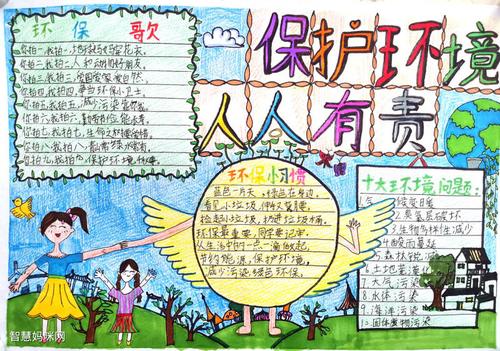 环保歌
你拍一，我拍一，
你拍二，我拍二，人和动物好朋友。
你拍三，我拍三，
你拍四，我拍四，争当环保小卫士。
你拍五，我拍五，减少污染
你拍六，我拍六，
你拍七，我拍七，
你拍八，我拍八，
你拍九，我拍九，保护环境
保护环境
人人有责
环保小习惯
蓝色一片天，绿色在身边，
看见小垃圾，伸
捡起小垃圾，扔进垃圾桶。
环保最重要，同学要记牢。
从生活中的一点一滴做起，
节约能源，保护环境，
减少污染，绿色环保。
十大环境问题：
1.气候变暖
2.臭氧层破坏
3.生物多样性减少
4.酸雨蔓延
5.森林锐减
6.土地荒漠化
7.大气污染
8.水体污染
9.海洋污染
10.固体废物污染
智慧妈咪网